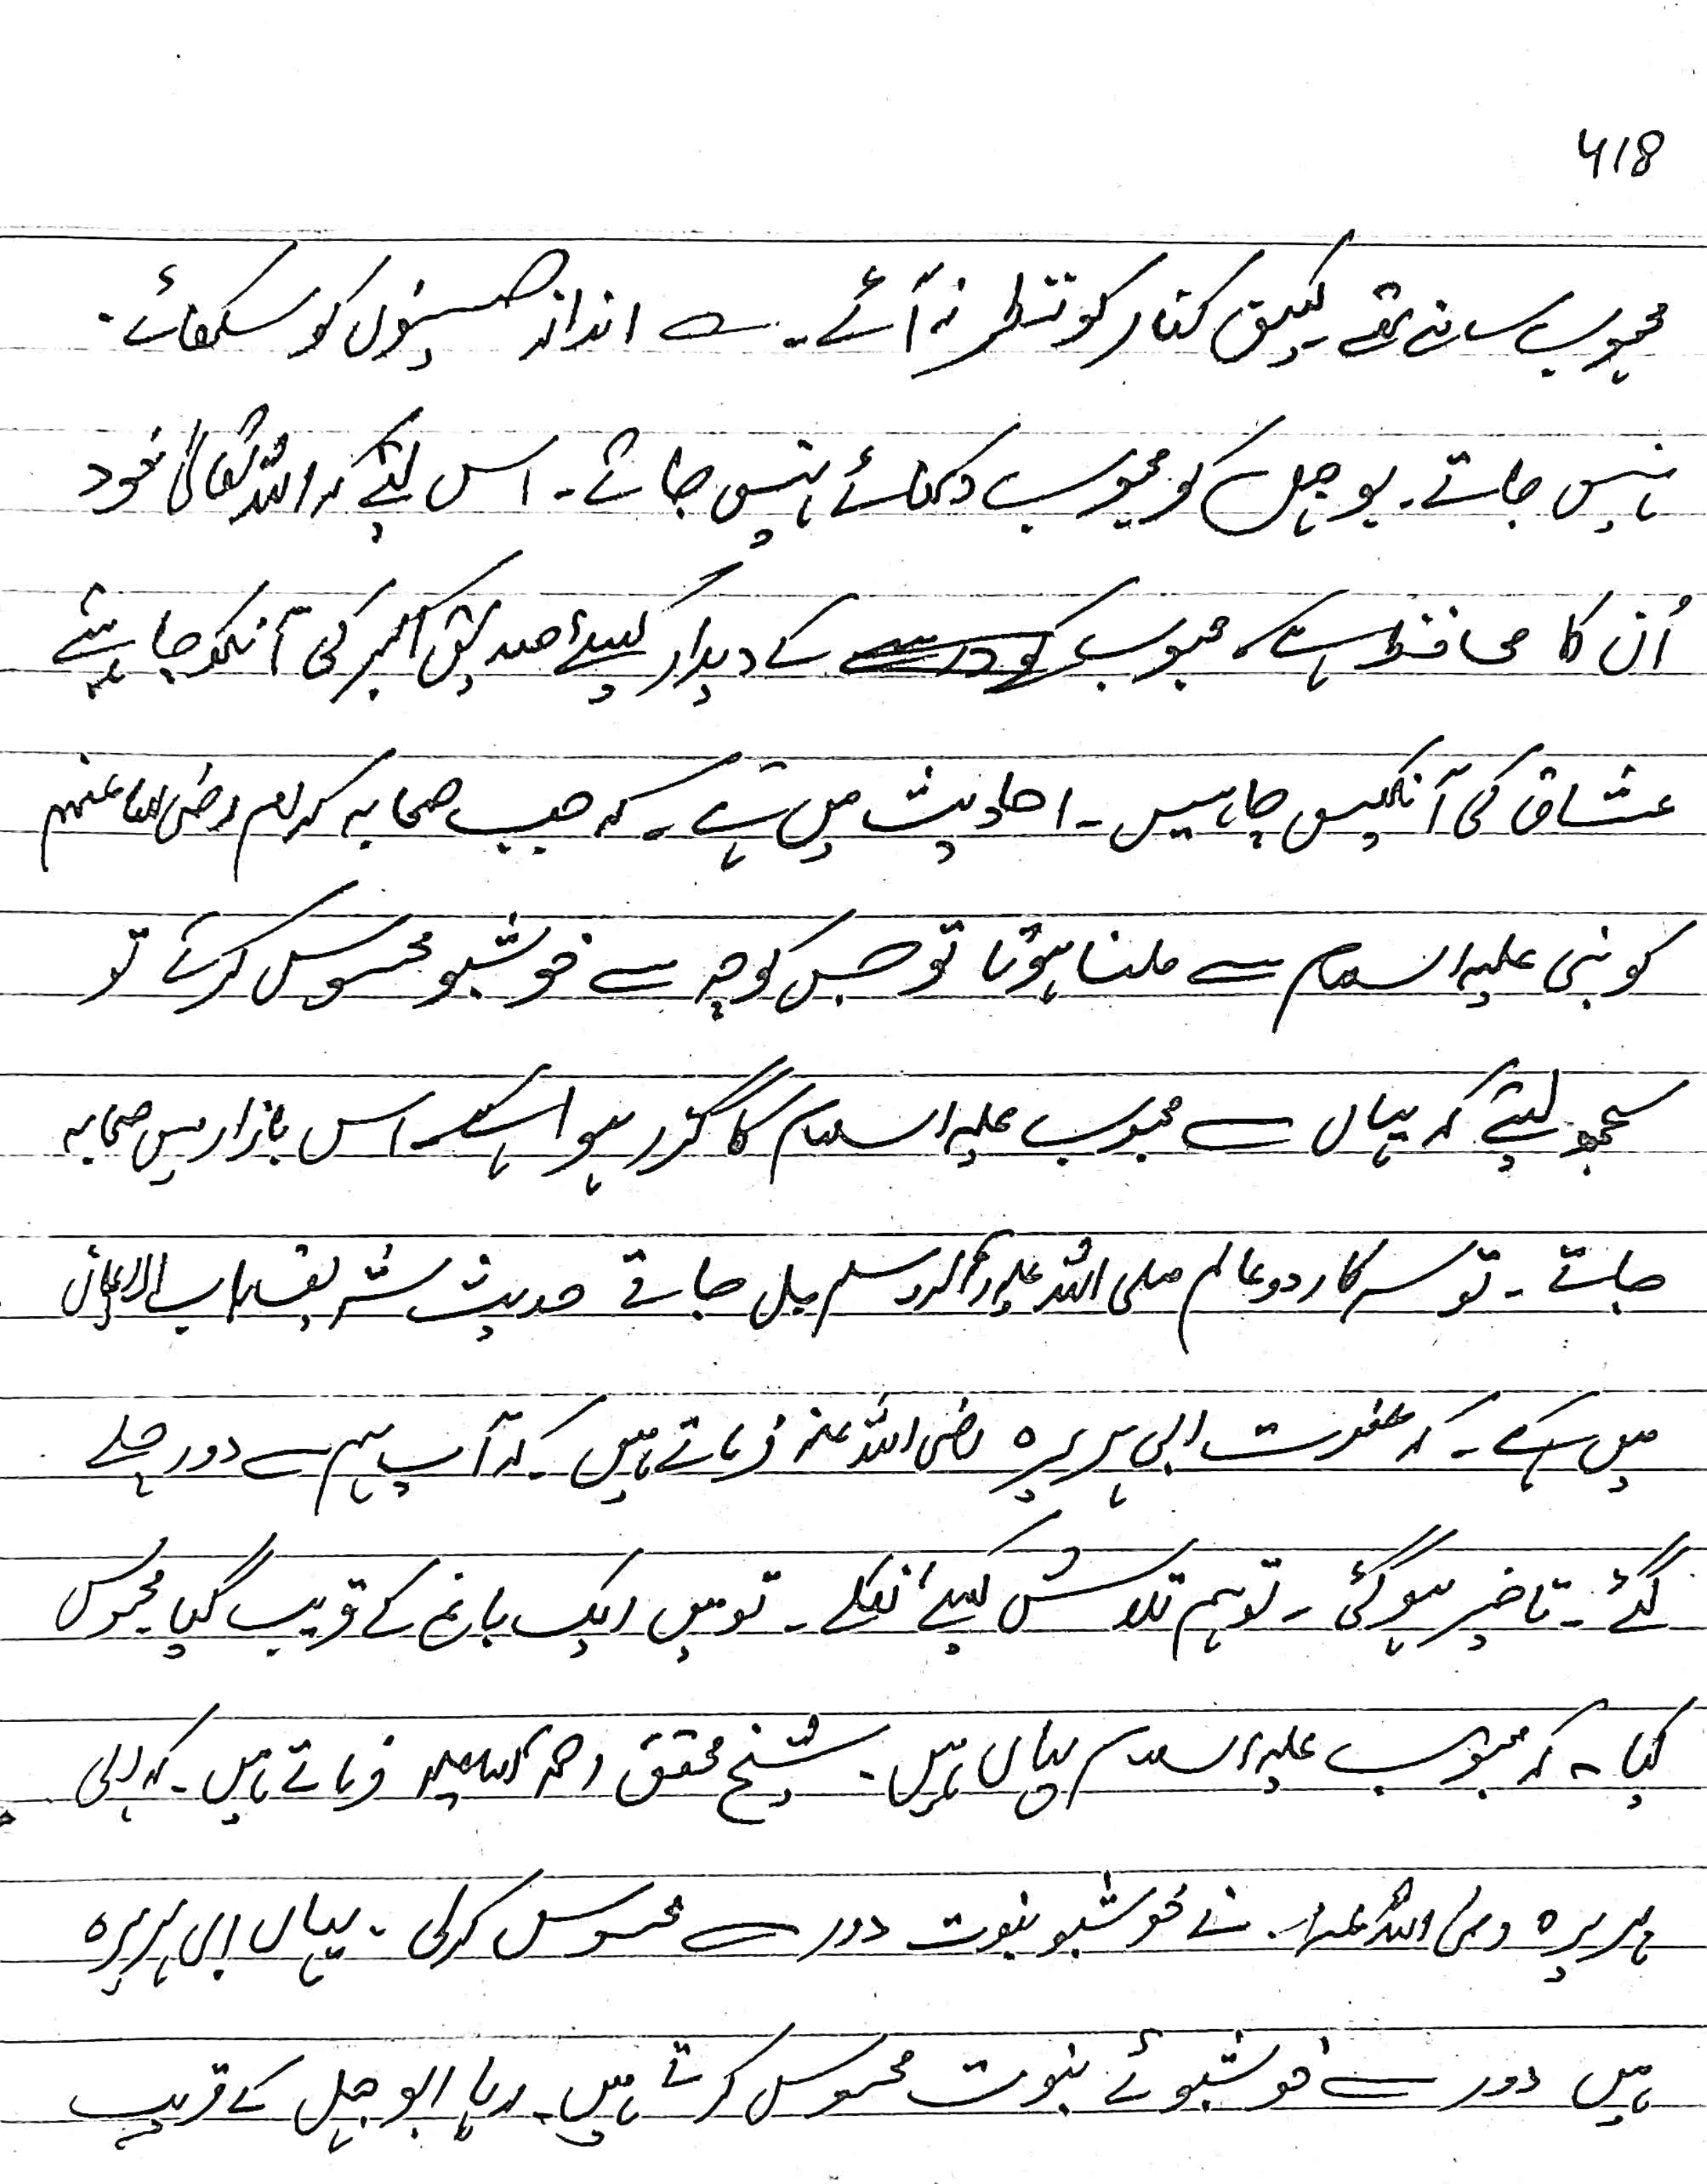 418
محبوب سامنے تھے لیکن کفار کو نظر نہ آئے۔ یہ انداز حسینوں کو سکھائے
نہیں جاتے۔ بوجہل کو محبوب دکھائے نہیں جاتے۔ اس لئے کہ اللہ تعالیٰ خود
اُن کا محافظ ہے۔ محبوب کے دیدار کیلئے صدیق اکبر کی آنکھ چاہئیے
عشاق کی آنکھیں چاہیں۔ احادیث میں ہے۔ کہ جب صحابہ کرام رضی اللہ عنہم
کو نبی علیہ السلام سے ملنا ہوتا تو جس کوچہ سے خوشبو محسوس کرتے تو
سمجھ لیتے کہ یہاں سے محبوب علیہ السلام کا گزر ہوا ہے۔ اس بازار میں صحابہ
جاتے۔ تو سرکار دو عالم صلی اللہ علیہ وآلہ وسلم مل جاتے حدیث شریف باب الایمان
میں ہے۔ کہ حضرت ابی ہریرہ رضی اللہ عنہ فرماتے ہیں۔ کہ آپ ہم سے دور چلے
گئے۔ تاخیر ہوگئی۔ تو ہم تلاش کیلئے نکلے۔ تو میں ایک باغ کے قریب گیا محسوس
کیا۔ کہ محبوب علیہ السلام یہاں ہیں۔ شیخ محقق رحمۃ اللہ علیہ فرماتے ہیں۔ کہ ابی
ہریرہ رضی اللہ عنہ نے خوشبو نبوت دور سے محسوس کرلی۔ یہاں ابی ہریرہ
ہیں دور سے خوشبوئے نبوت محسوس کرتے ہیں۔ وہاں ابوجہل کے قریب